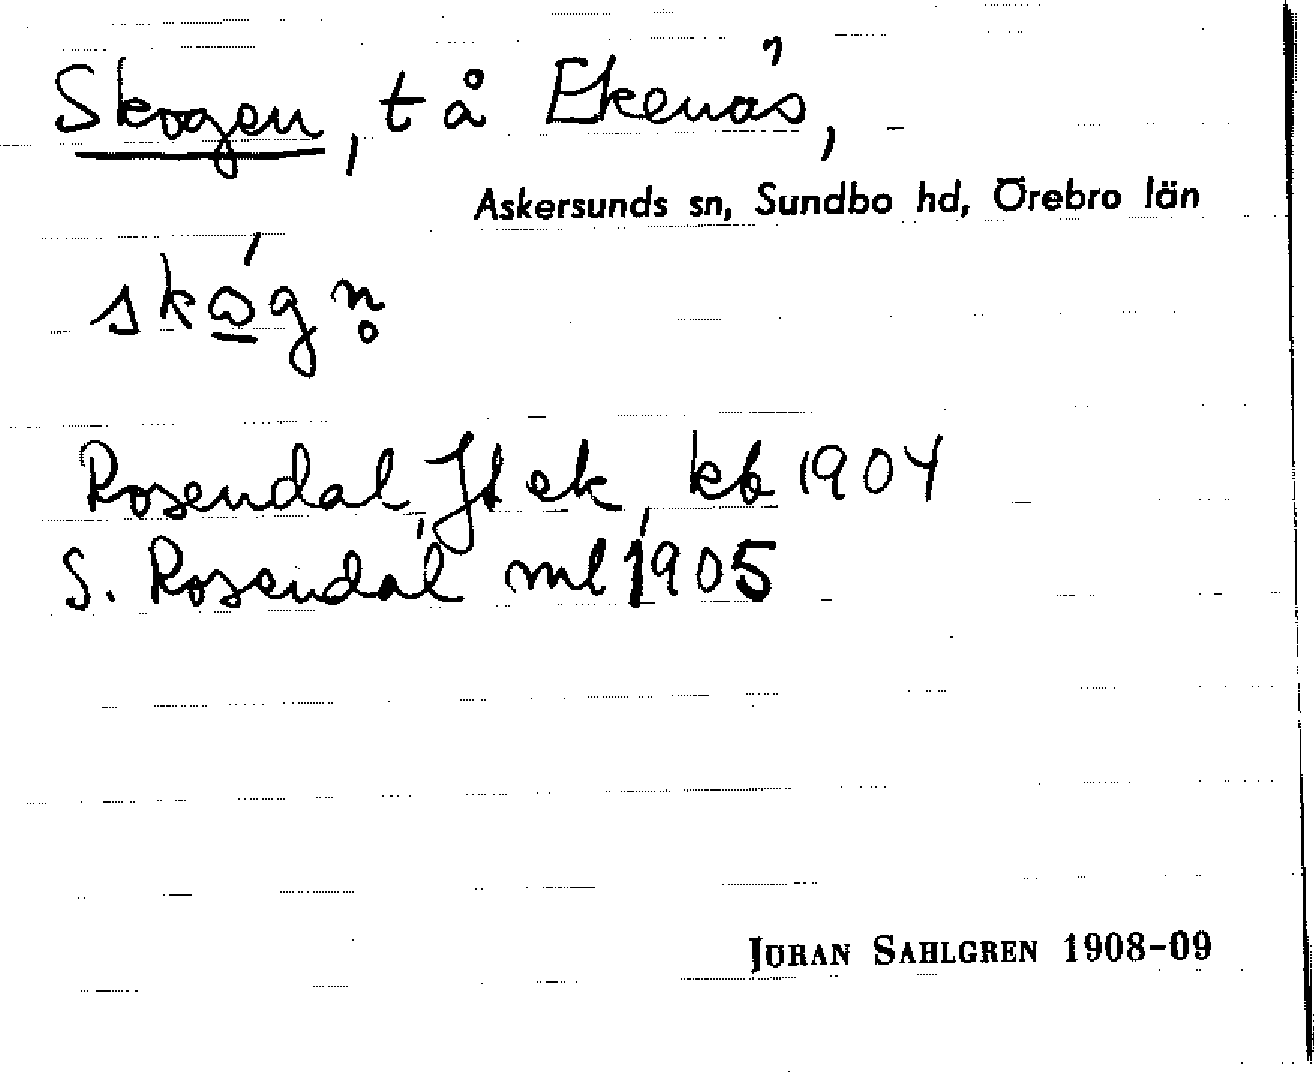 Skogen, t å Ekenäs,
Askersunds sn, Sundbo hd, Örebro län
skógn̥
Rosendal, Jt ek kb 1904
S. Rosendal ml 1905
JÖRAN SAHLGREN 1908-09